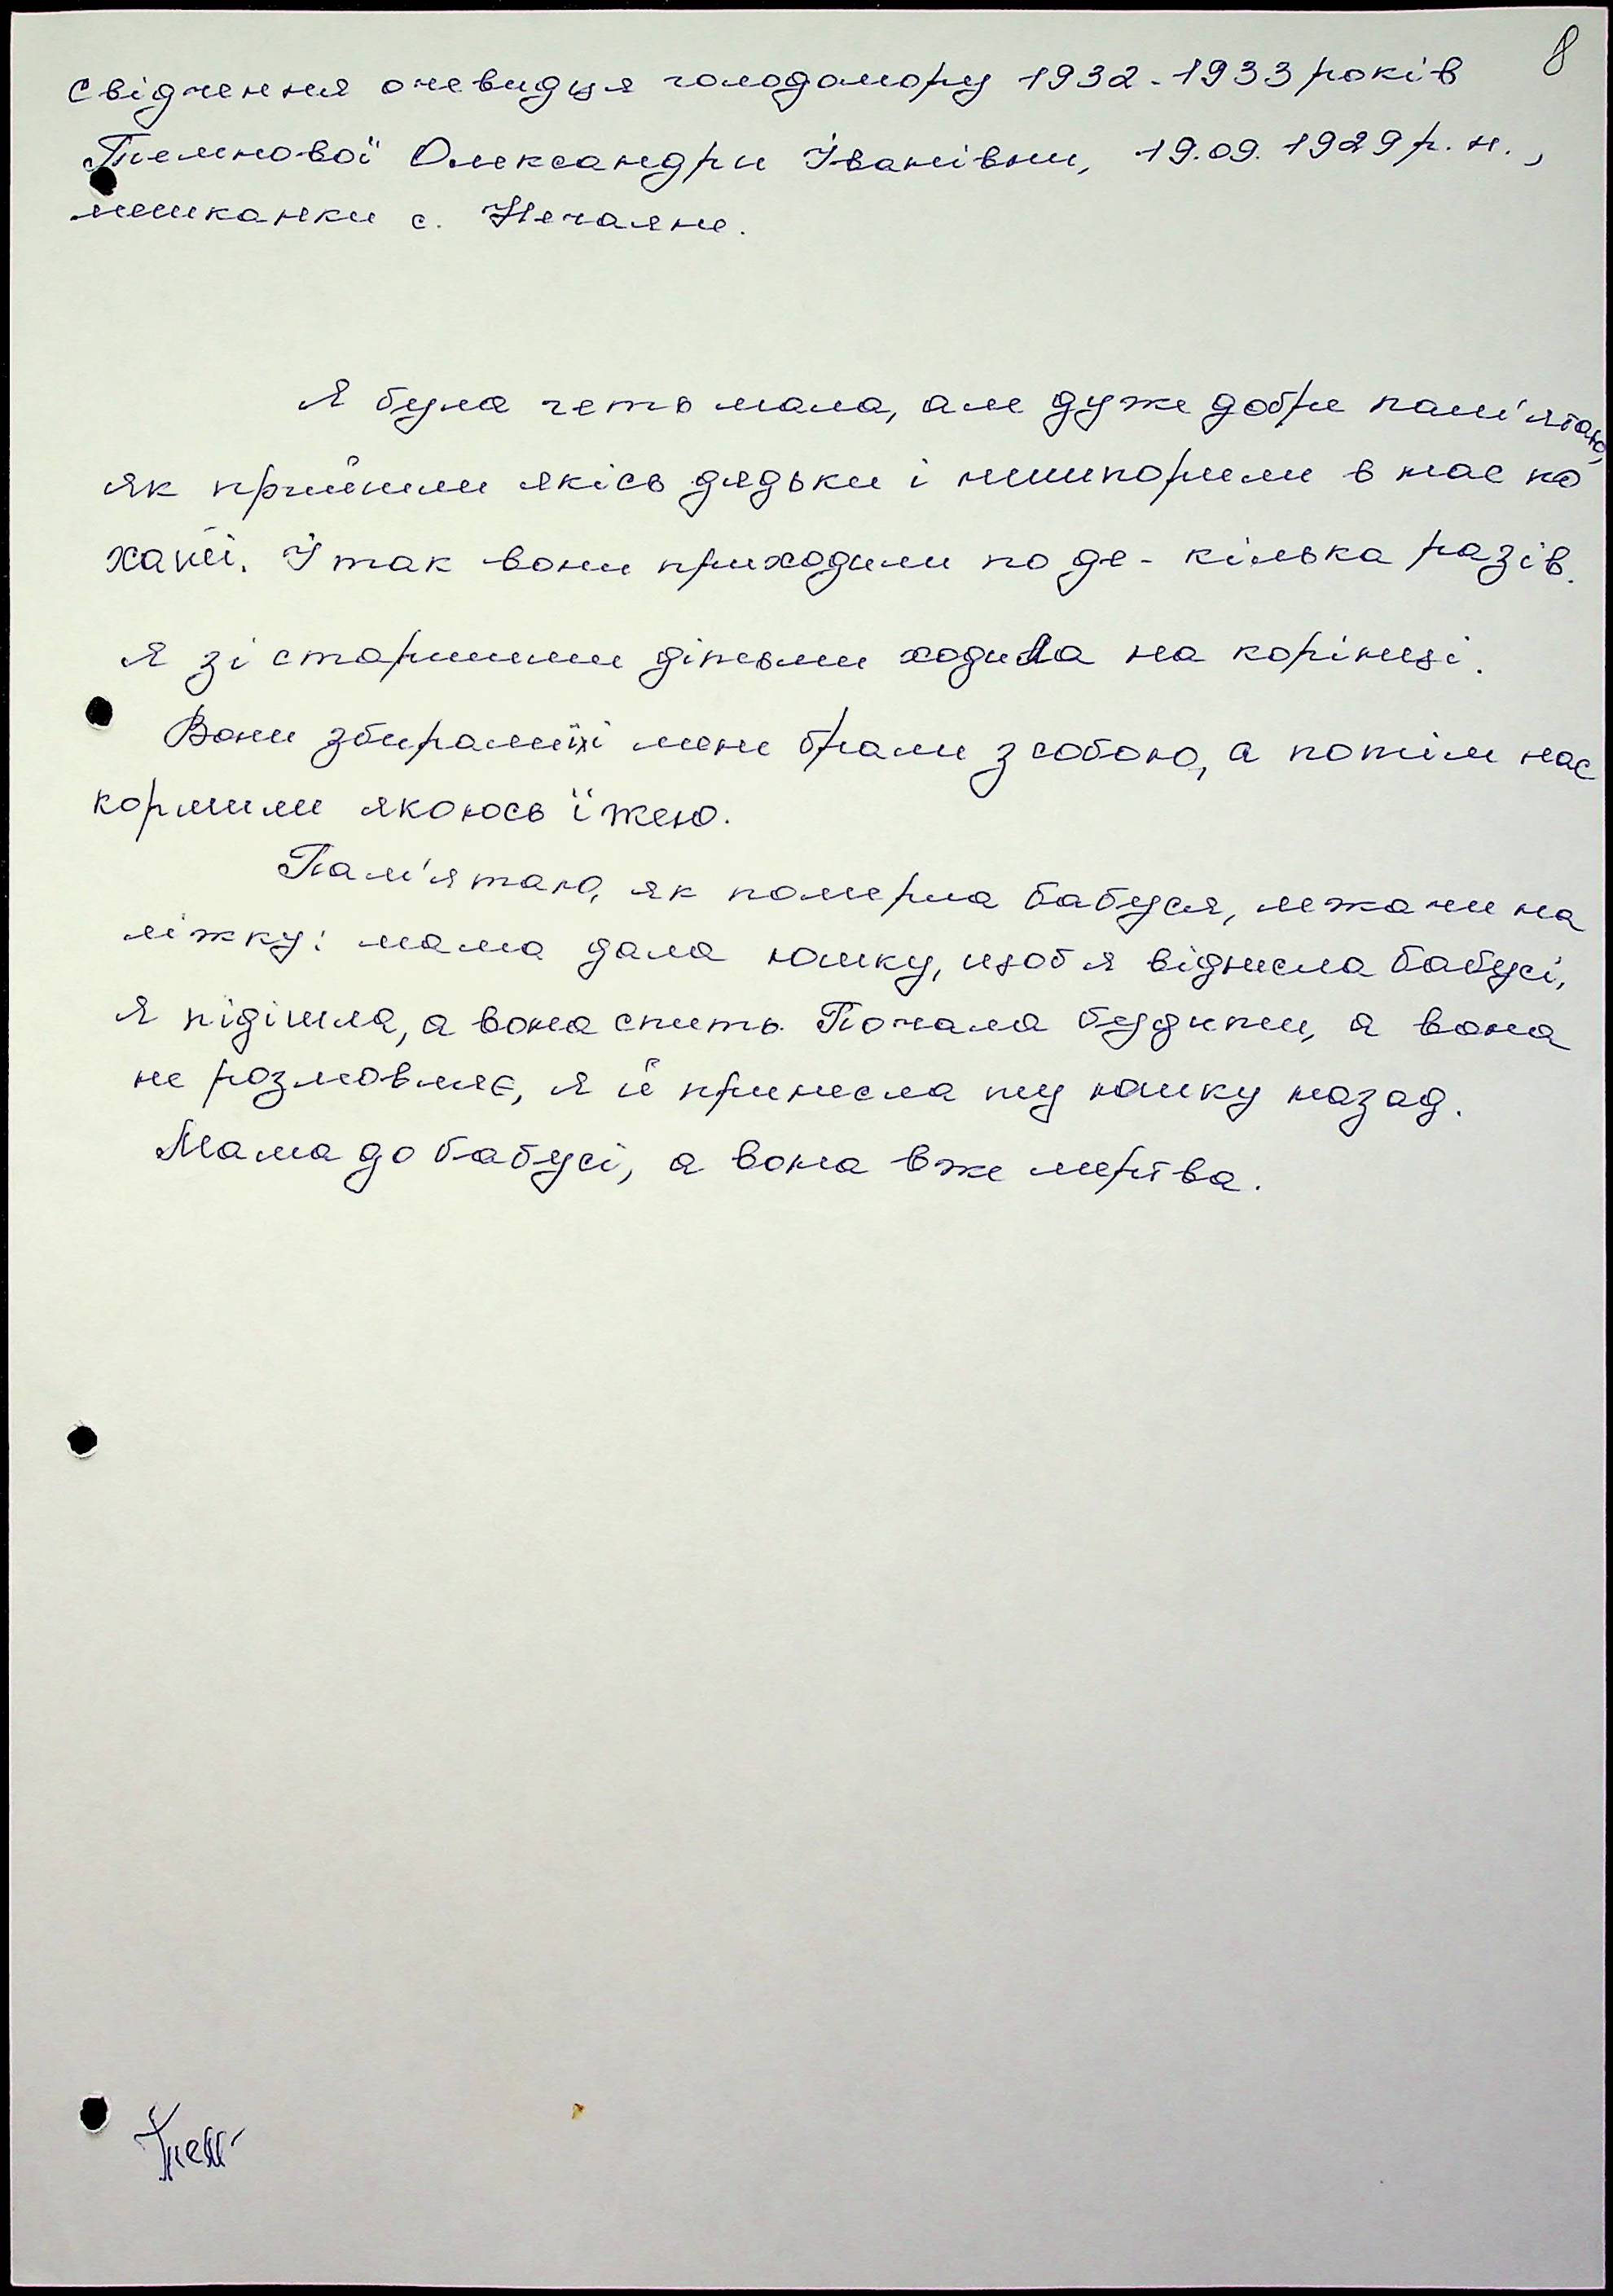 8
Свідчення очевидця голодомору 1932-1933 років
Темнової Олександри Іванівни, 19.09.1929 р.н.,
мешканки с. Нечаяне.
Я була геть мала, але дуже добре пам'ятаю,
як прийшли якісь дядьки і нишпорили в нас по
хаті. І так вони приходили по де-кілька разів.
Я зі старшими дітьми ходила на корінці.
Вони збирали їх і мене брали з собою, а потім нас
кормили якоюсь їжею.
Пам'ятаю, як померла бабуся, лежачи на
ліжку: мама дала юшку, щоб я віднесла бабусі,
я підішла, а вона спить. Почала будити, а вона
не розмовляє, я й принесла ту юшку назад.
Мама до бабусі, а вона вже мертва.